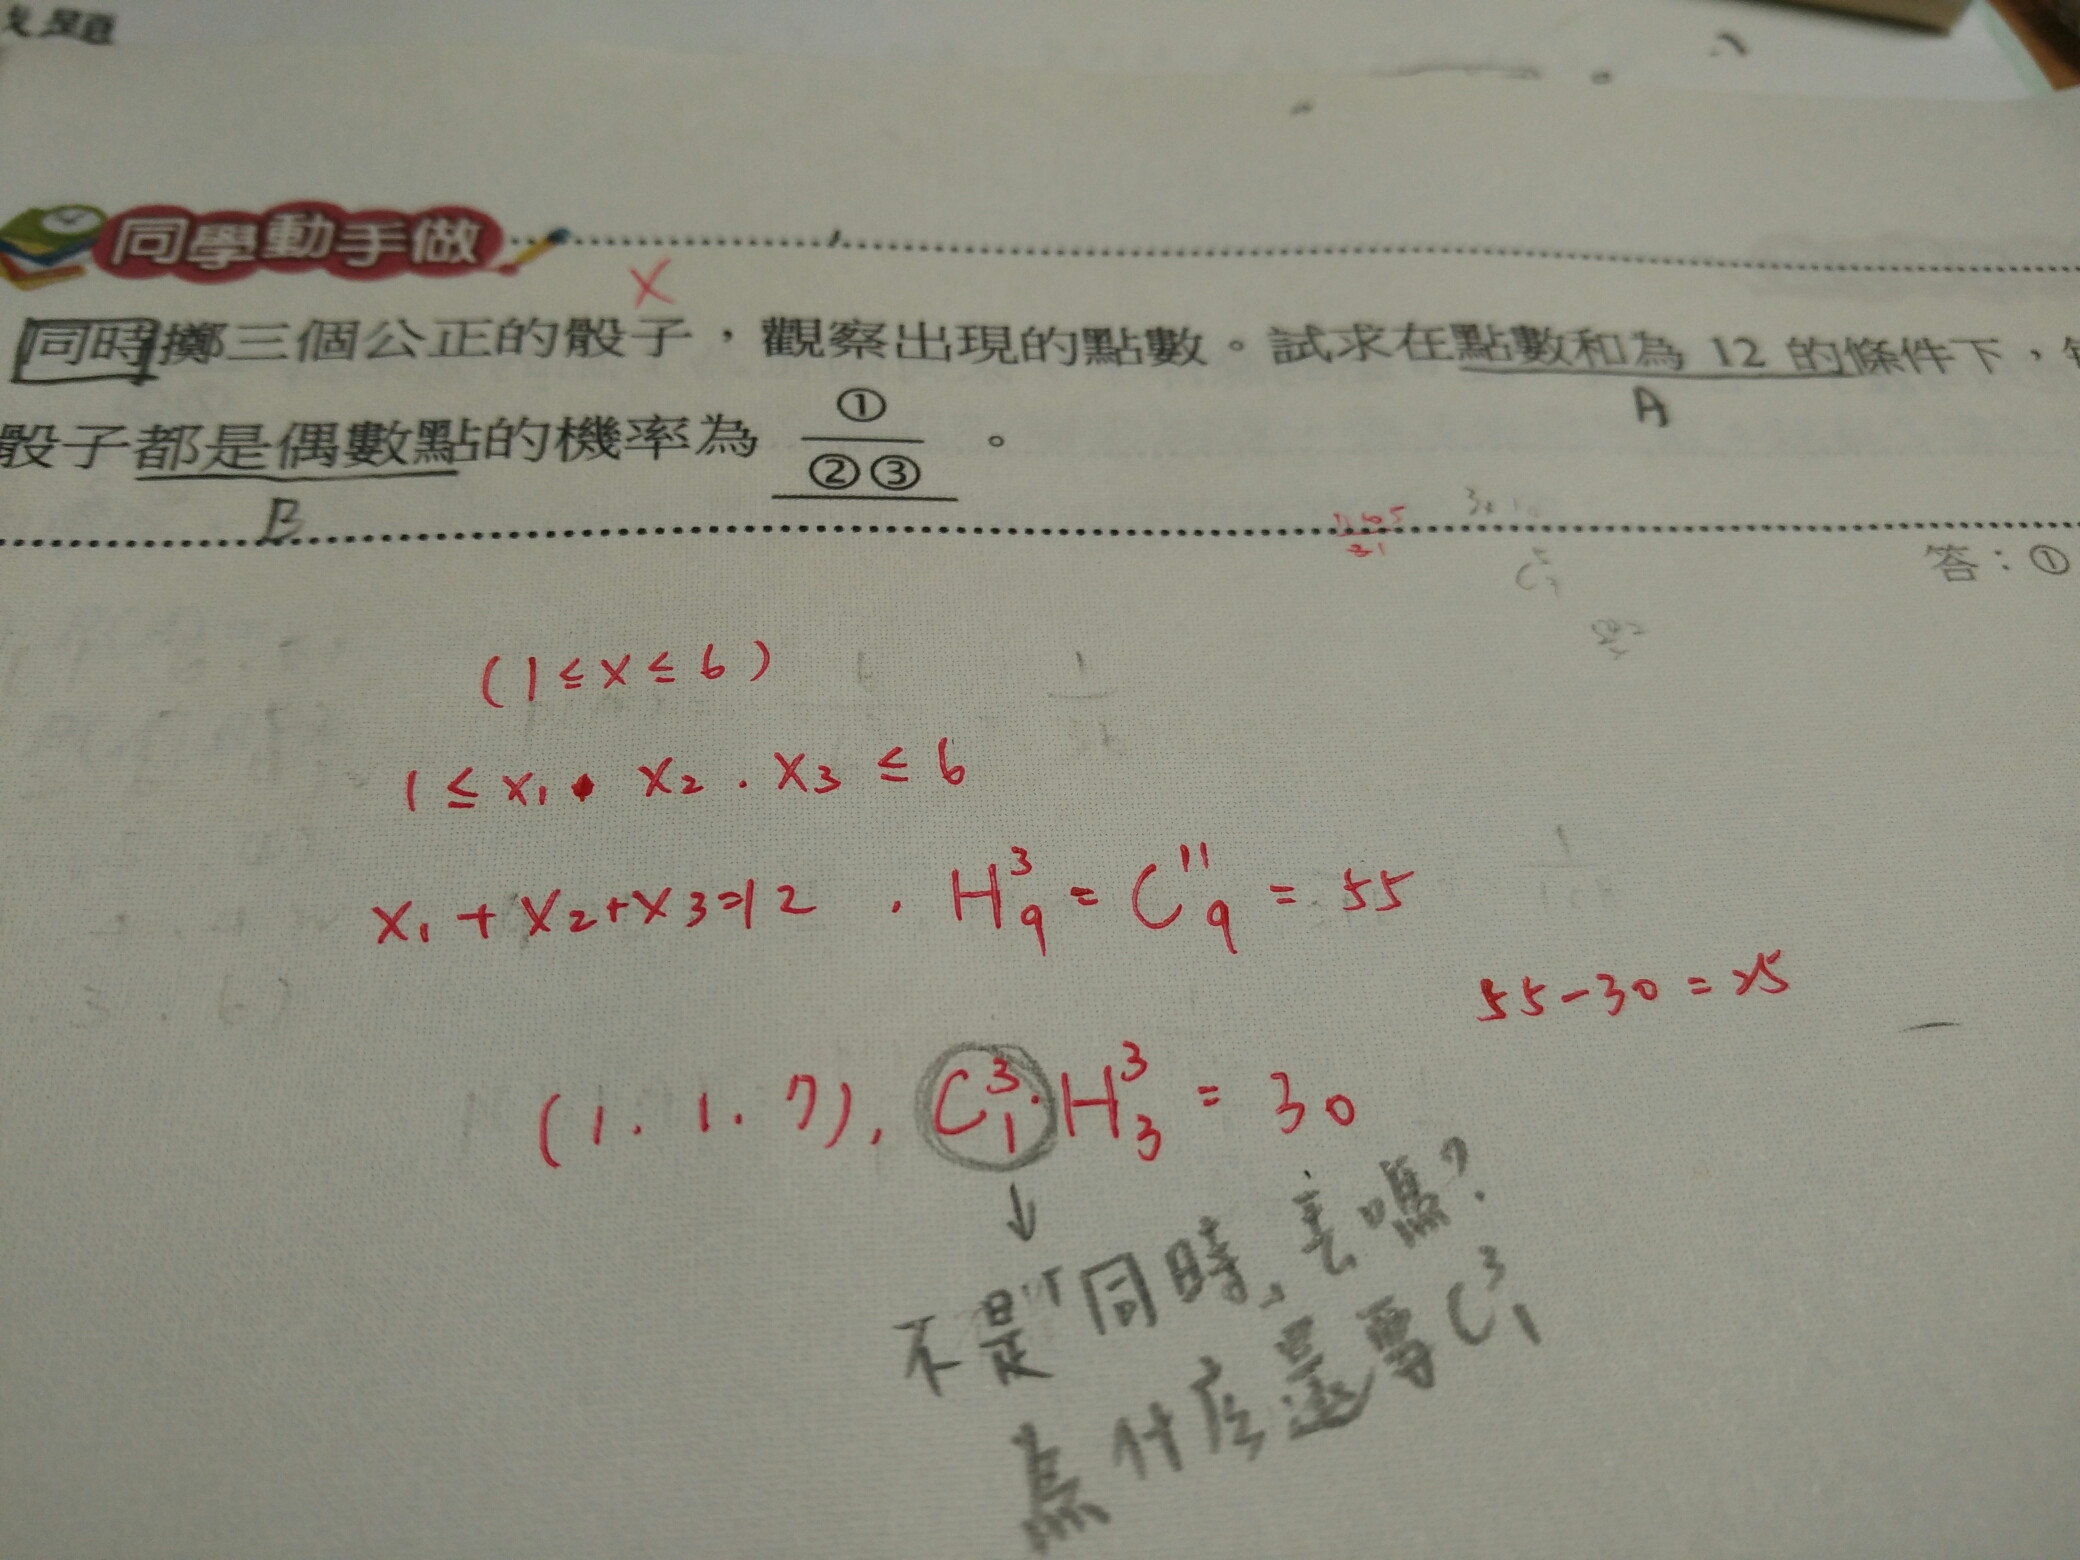 題
同學動手做
X
同時擲三個公正的骰子，觀察出現的點數。試求在點數和為 12 的條件下，
A
骰子都是偶數點的機率為 ①/②③ 。
B
答：①
(1≤x≤6)
1≤x₁．x₂．x₃≤6
x₁+x₂+x₃=12 ． H³₉ = C¹¹₉ = 55
55-30=25
(1．1．7)，C³₁·H³₃ = 30
↓
不是"同時"丟嗎?
為什麼還要C³₁